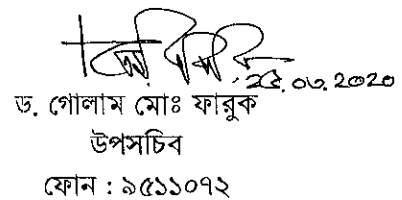 ২৫.০৩.2020
ড. গোলাম মোঃ ফারুক
উপসচিব
ফোন : ৯৫১১০৭২